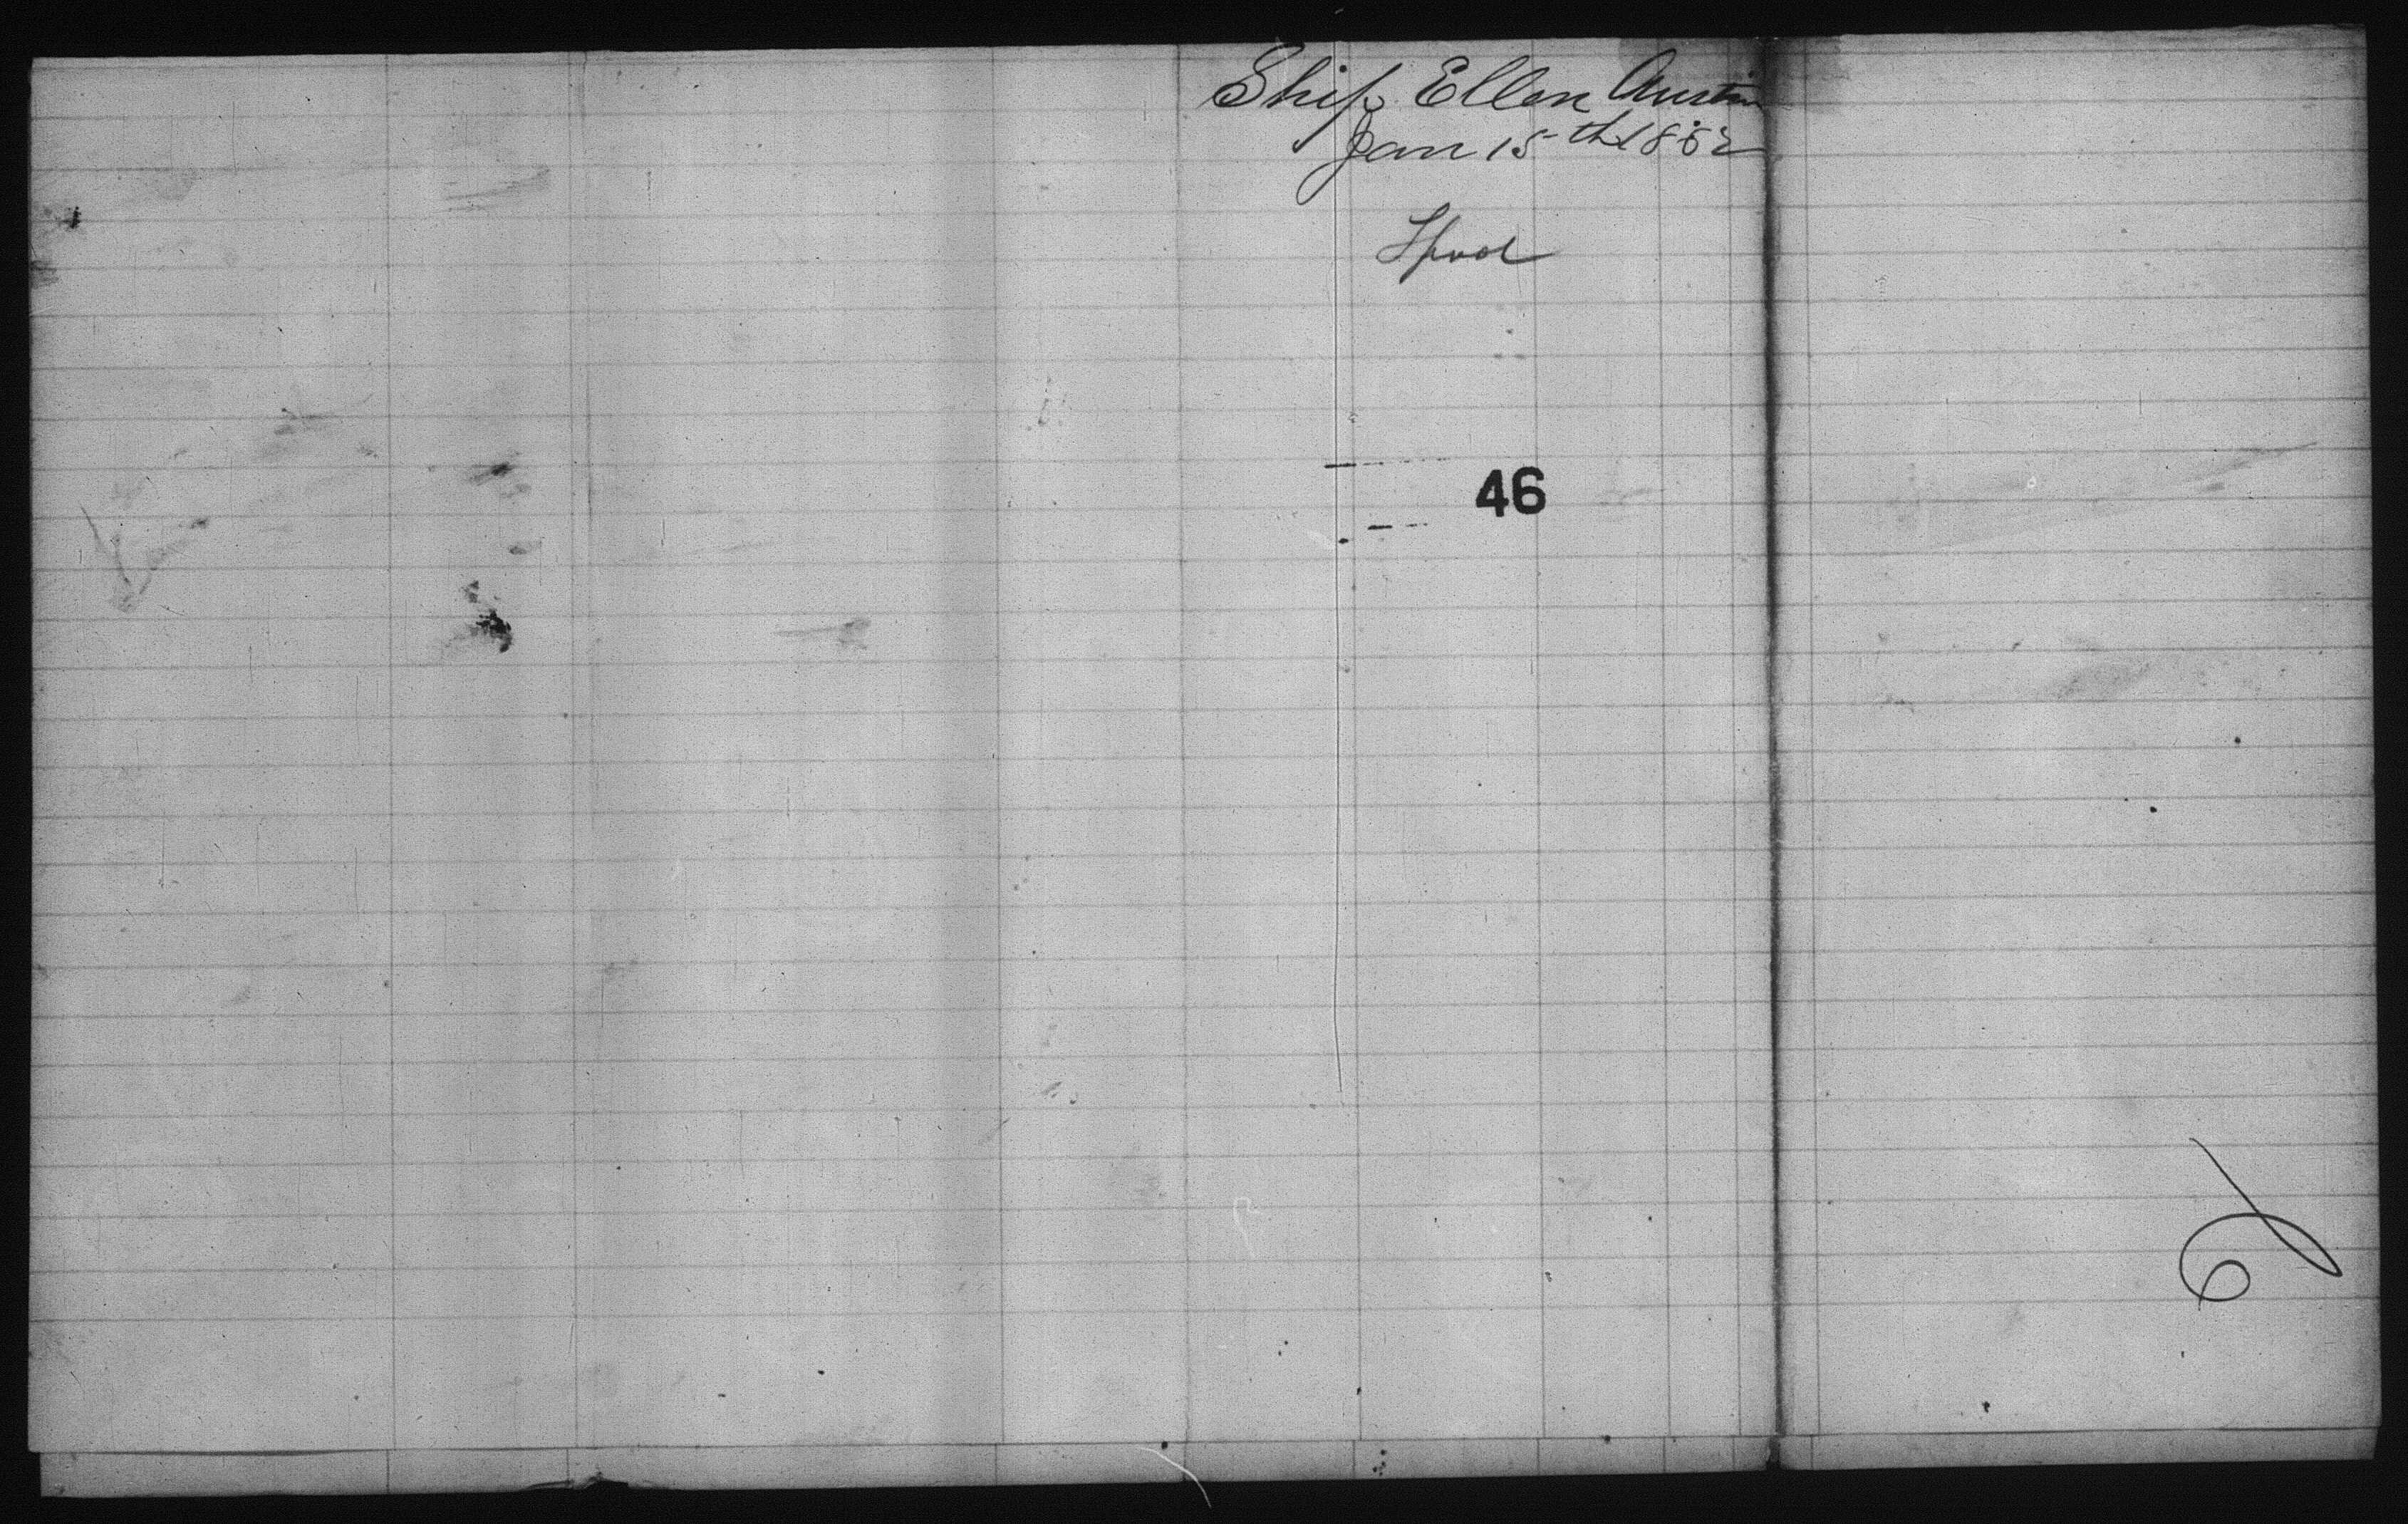 Ship Ellen Austin
Jan 15th 1862
Lpool
46